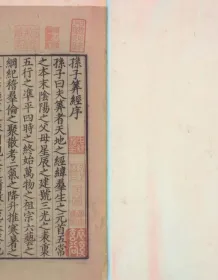 孫子筭經序
孫子曰夫筭者天地之經緯羣生之元首五常
之本末陰陽之父母星辰之建號三光之表裏
五行之準平四時之終始萬物之祖宗六藝之
綱紀稽羣倫之聚散考二氣之降升推寒暑之